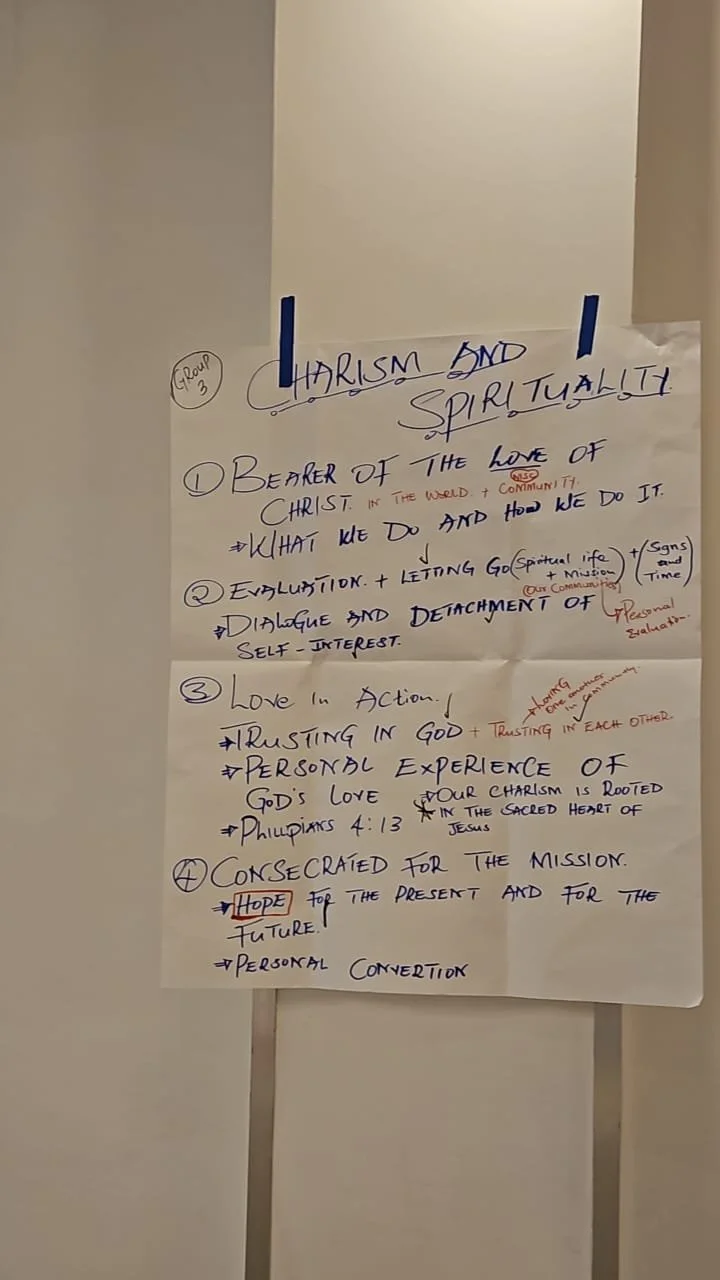 GROUP 3
CHARISM AND
SPIRITUALITY
① BEARER OF THE LOVE OF
CHRIST. IN THE WORLD. + MSC COMMUNITY.
⇒ WHAT WE DO AND HOW WE DO IT.
② EVALUATION. + LETTING GO (Spiritual life + Mission) + (Signs and Time)
(Our Communities)
⇒ DIALOGUE AND DETACHMENT OF
SELF-INTEREST.
→ Personal Evaluation.
③ LOVE IN ACTION.
→ Loving one another in community.
⇒ TRUSTING IN GOD + TRUSTING IN EACH OTHER.
⇒ PERSONAL EXPERIENCE OF
GOD'S LOVE
⇒ OUR CHARISM IS ROOTED
IN THE SACRED HEART OF
JESUS
⇒ PHILLPIANS 4:13
④ CONSECRATED FOR THE MISSION.
⇒ HOPE FOR THE PRESENT AND FOR THE
FUTURE.
⇒ PERSONAL CONVERTION